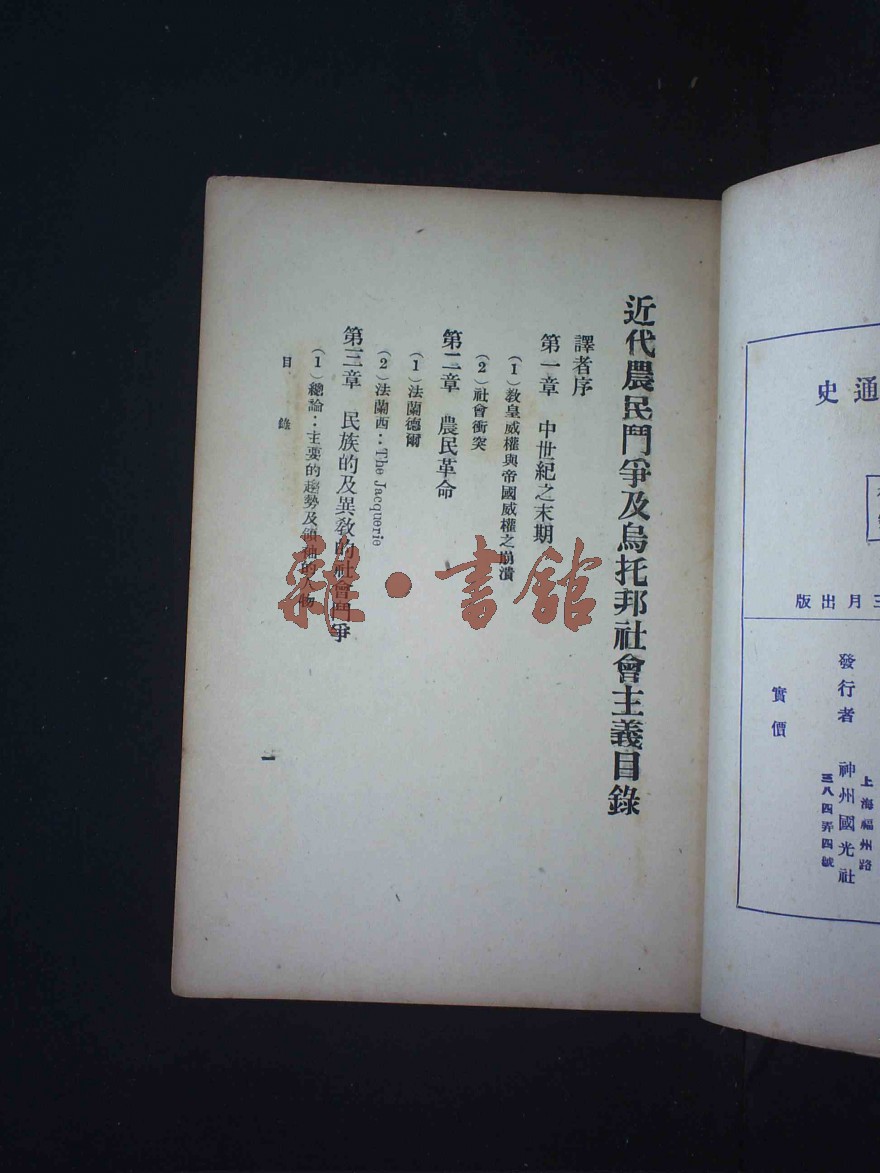 近代農民鬥爭及烏托邦社會主義目錄
譯者序
第一章 中世紀之末期
(1)教皇威權與帝國威權之崩潰
(2)社會衝突
第二章 農民革命
(1)法蘭德爾
(2)法蘭西：The Jacquerie
第三章 民族的及異教的社會鬥爭
(1)總論：主要的趨勢及領袖的人物
目錄
一
雜·書館
通史
三月出版
發行者 神州國光社
上海福州路
三八四弄四號
實價